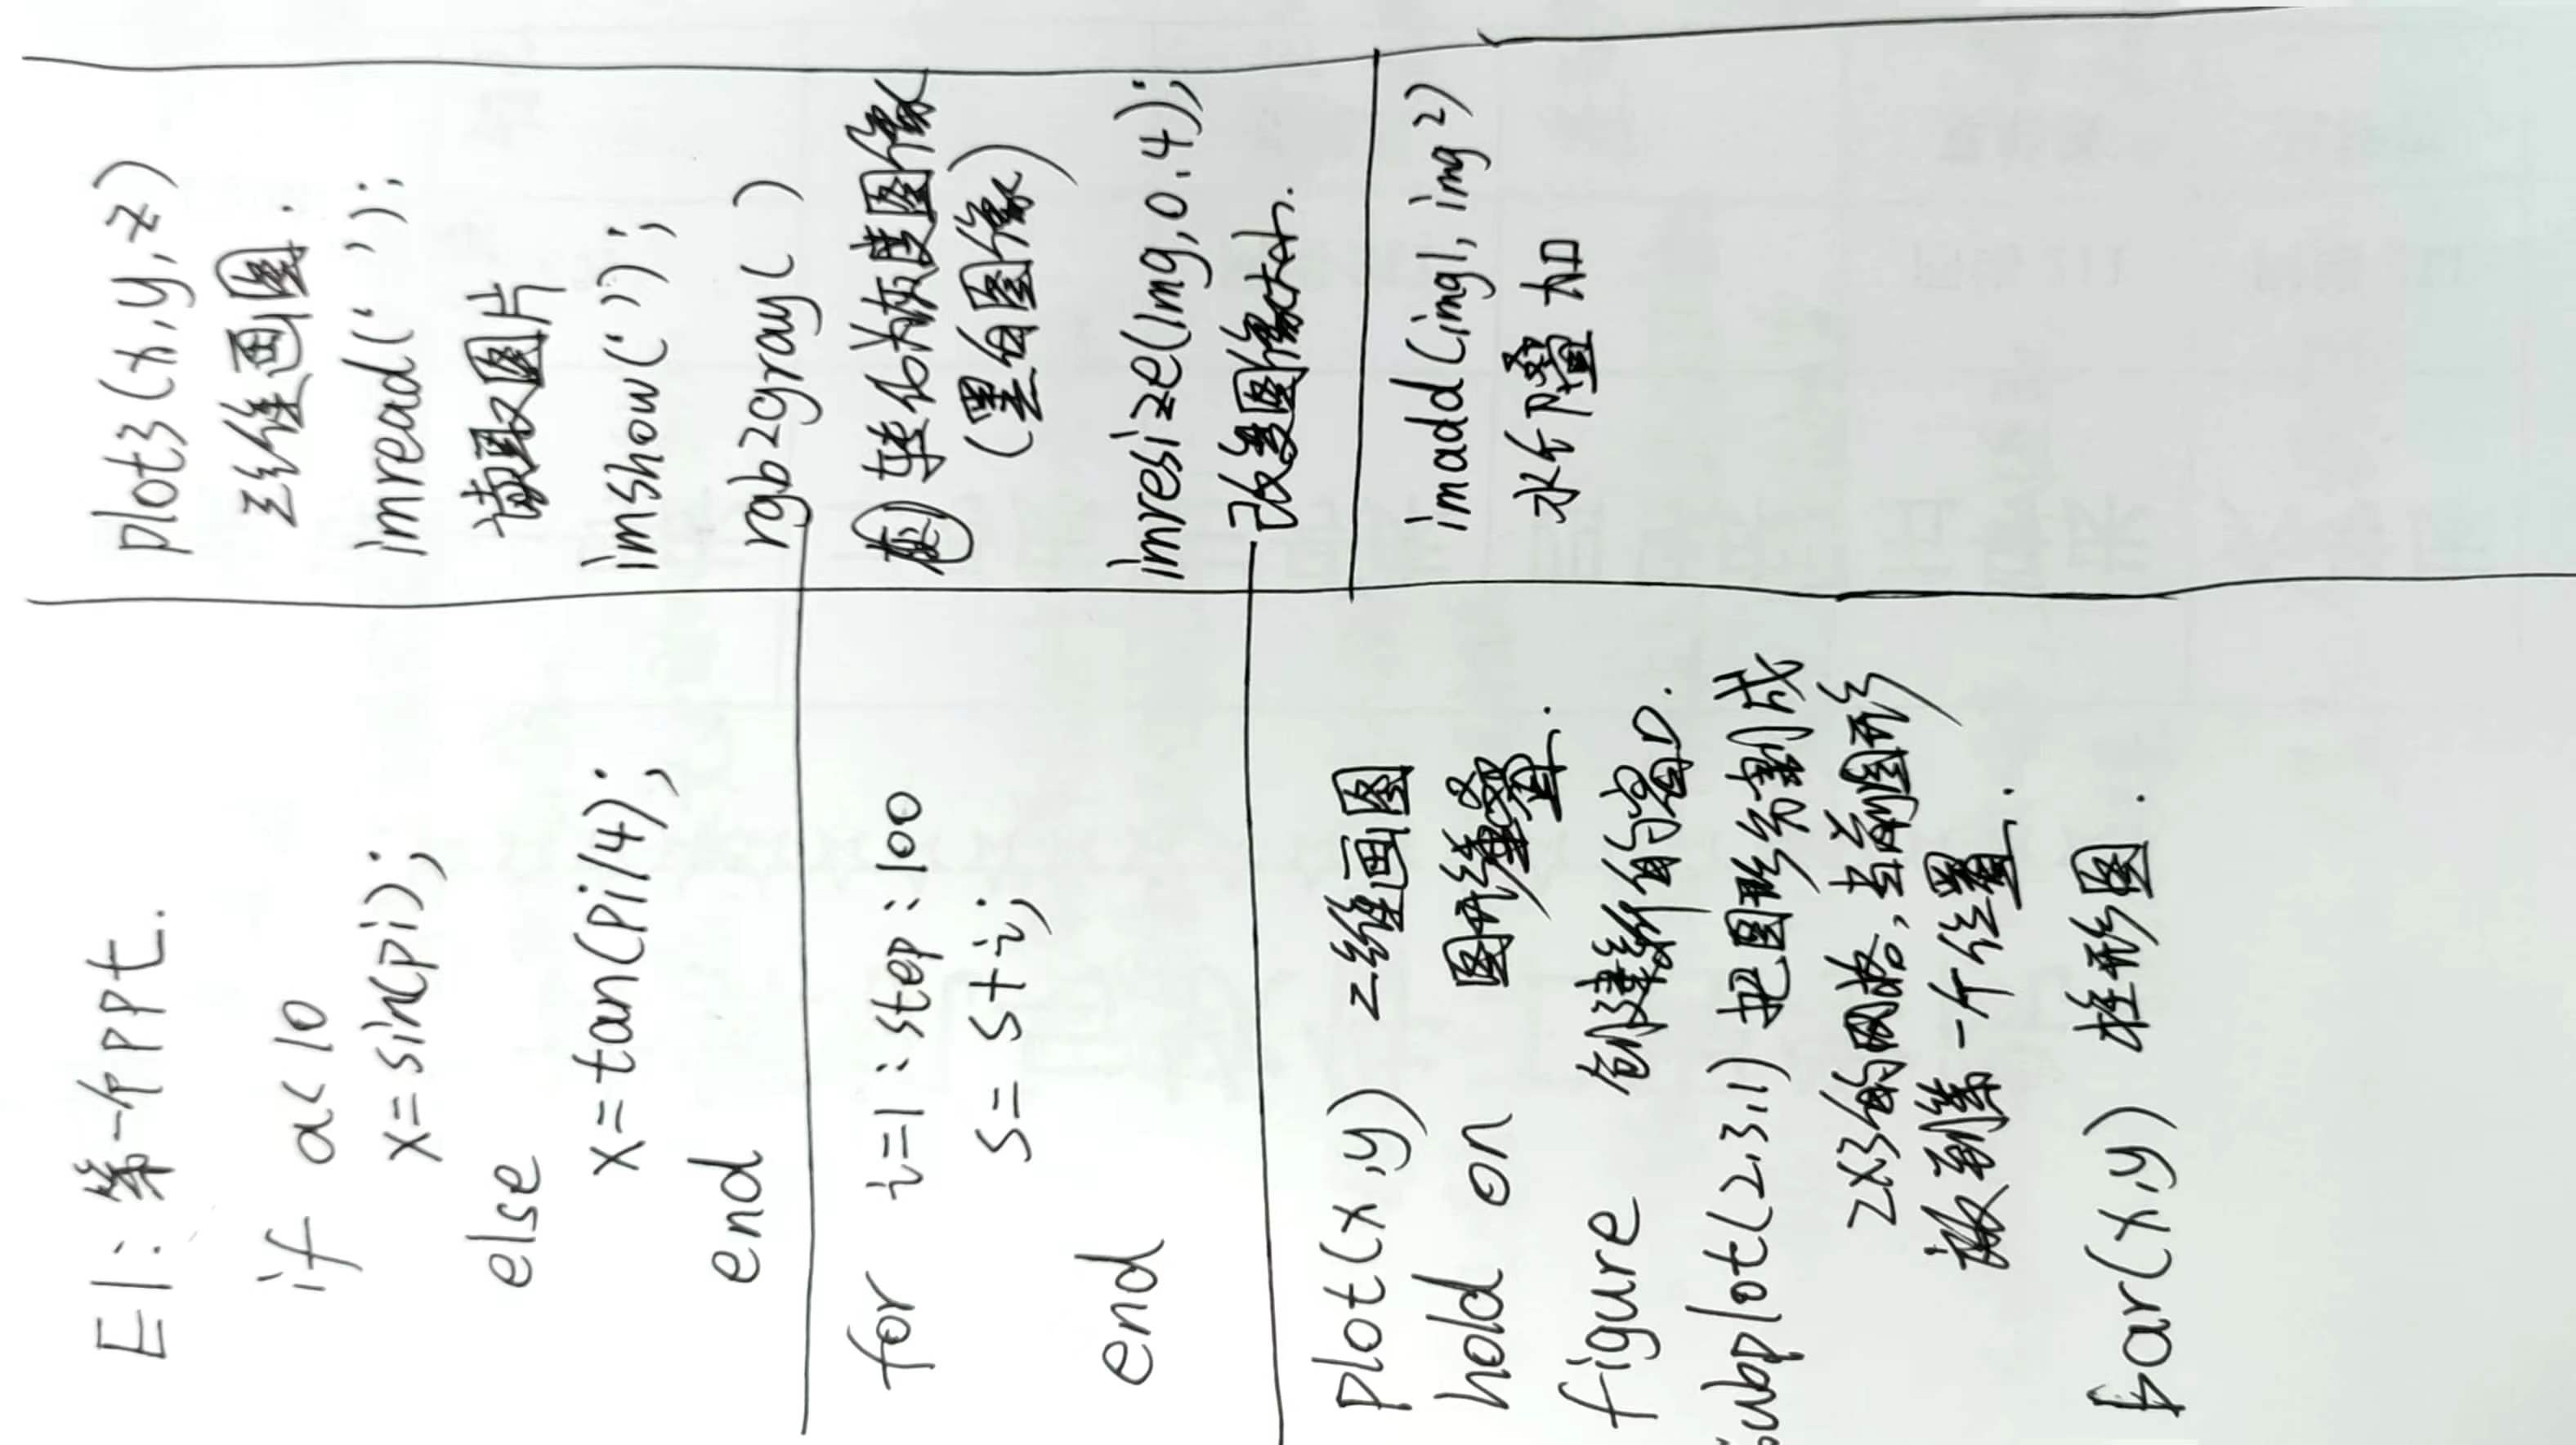 E1: 第一个PPt.
if a<10
x=sin(pi);
else
x=tan(pi/4);
end
for i=1:step:100
s= s+i;
end
plot(x,y) 二维画图
hold on 图形重叠.
figure 创建新的窗口.
subplot(2,3,1) 把图形分割成
2x3的网格,当前图形
放到第一个位置.
bar(x,y) 柱形图.
plot3(x,y,z)
三维画图.
imread(' ');
读取图片
imshow(' ');
rgb2gray( )
转化为灰度图像
(黑白图像)
imresize(img,0.4);
改变图像大小.
imadd(img1, img2)
水印叠加